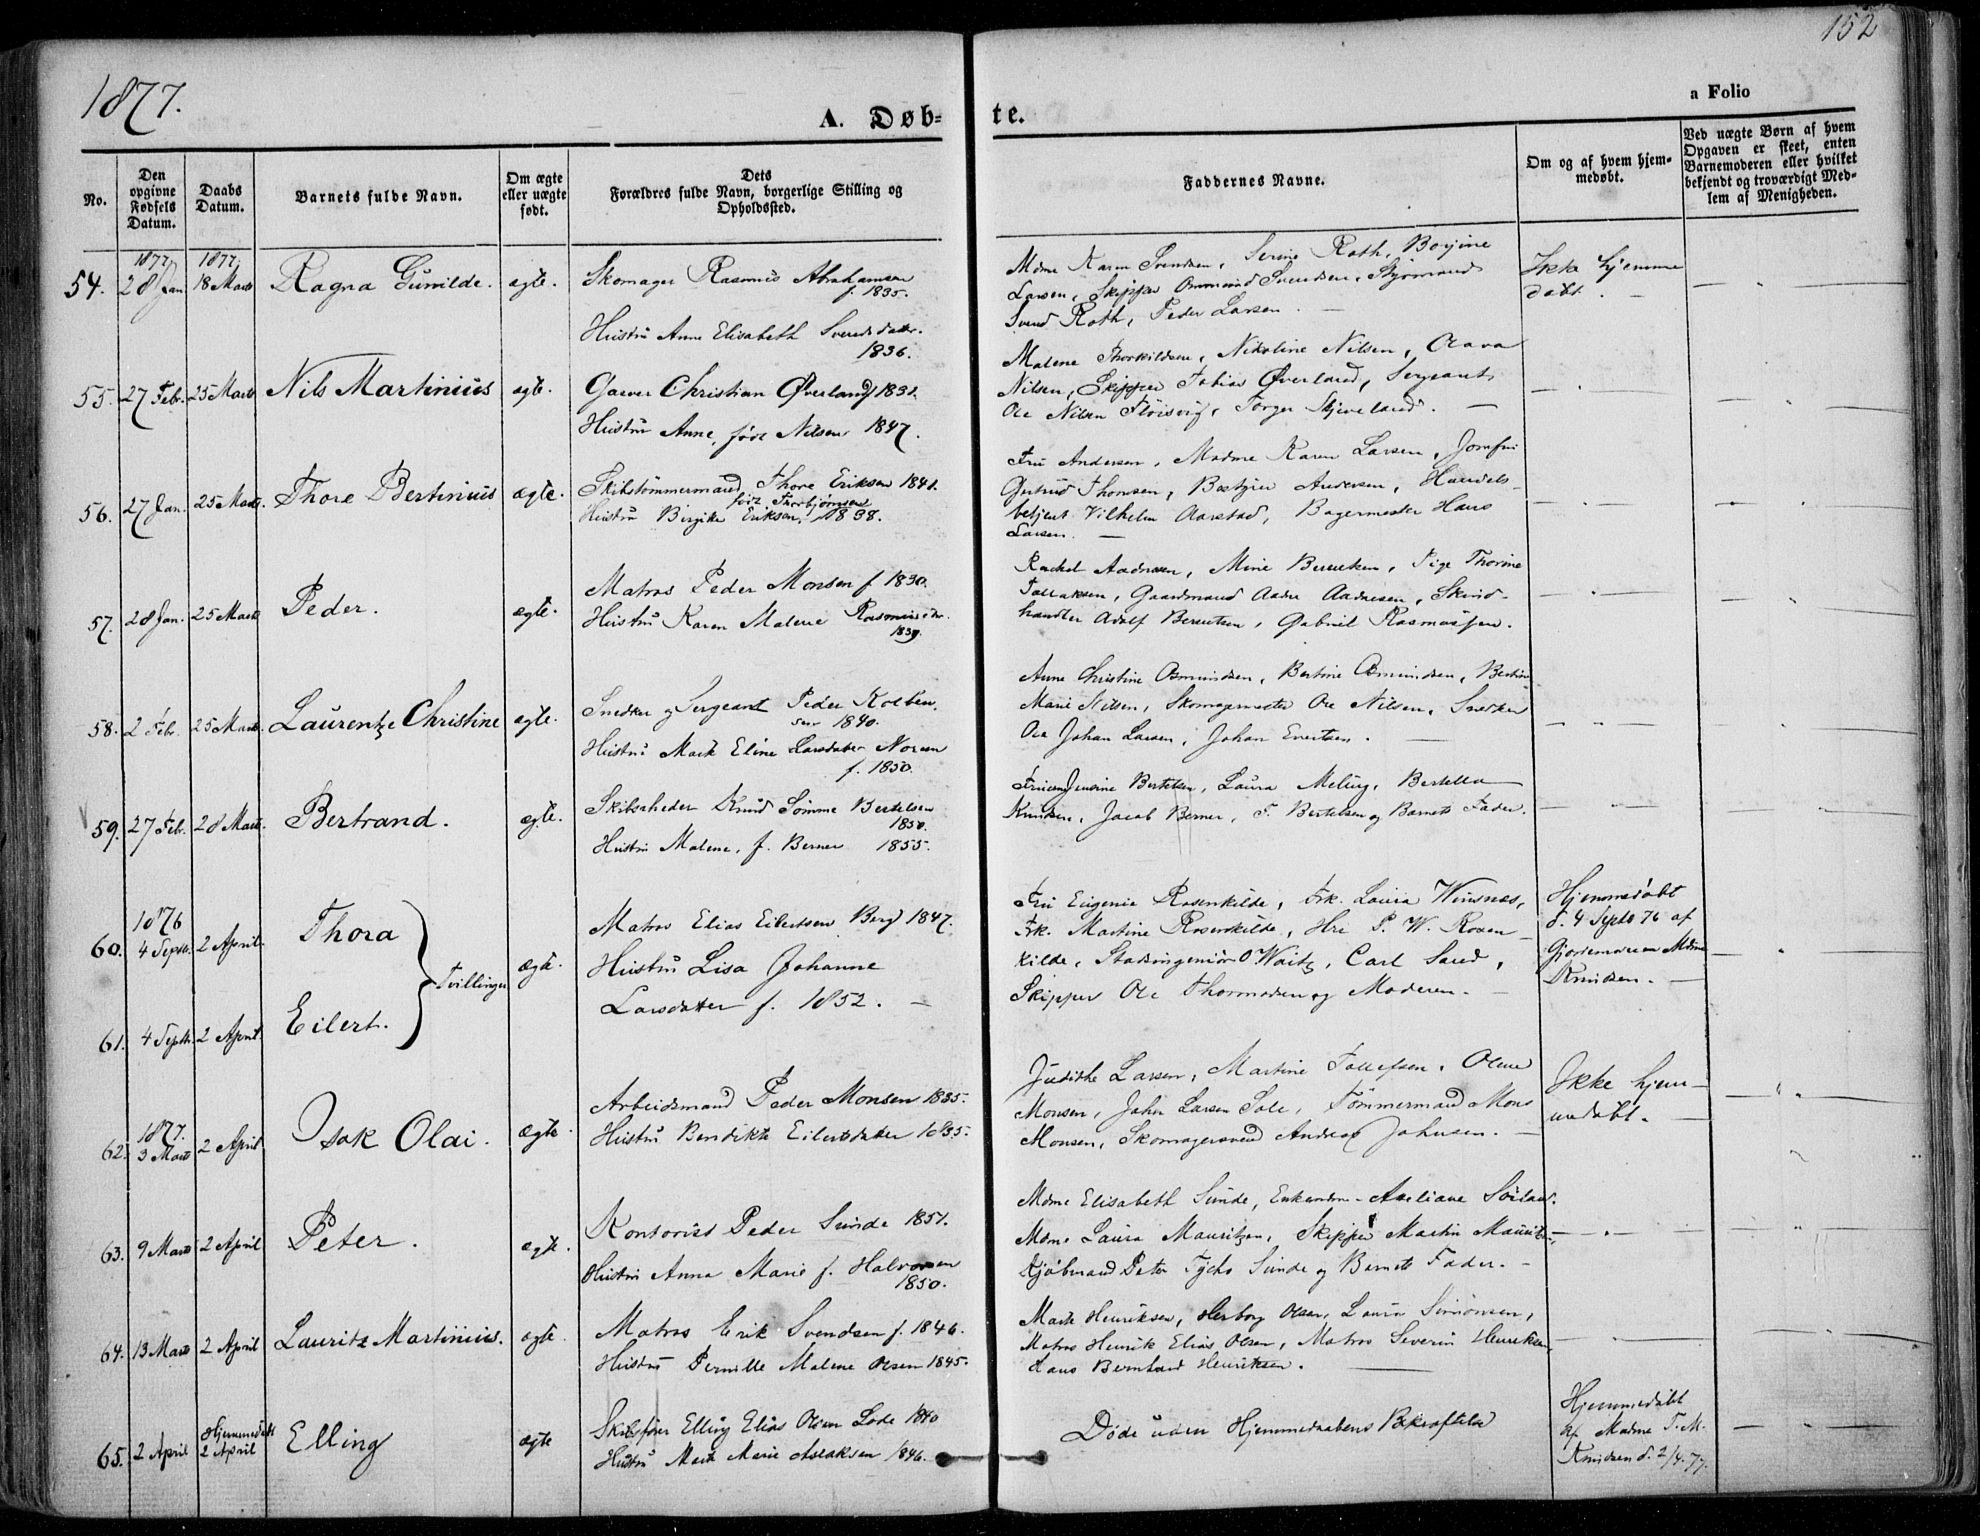 1877.
152
A. Døb-
te.
a Folio
No.
Den opgivne Fødsels Datum.
Daabs Datum.
Barnets fulde Navn.
Om ægte eller uægte født.
Dets Forældres fulde Navn, borgerlige Stilling og Opholdssted.
Faddernes Navne.
Om og af hvem hjemmedøbt.
Ved uægte Børn af hvem Opgaven er skeet, enten Barnemoderen eller hvilket bekjendt og troværdigt Medlem af Menigheden.
1877 1877
54. 28 Jan. 18 Marts Ragna Gunilde. ægte. Skomager Rasmus Abrahamsen
f. 1835.
Hustru Anne Elisabeth Svendsdatter.
1836.
Mdme Karen Svendsen, Serine Roth,
Larsen, Skipper Svendsen, Styrmand
Svend Roth, Peder Larsen. —
Ikke hjemme
døbt. —
55. 27 Febr. 25 Marts Nils Martinius ægte. Garver Christian Øverland 1831.
Hustru Anne, født Nilsen 1847.
Malene Thorkildsen, Nikoline Nilsen, Olava
Nilsen, Skipper Tobias Øverland, Sergeant
Ole Nilsen Torger Skjeveland. —
56. 27 Jan. 25 Marts. Thore Bertinius ægte. Skibstømmermand Thore Eriksen 1841.
født Thorbjørnsen
Hustru Birgitte Eriksen, 1838.
Fru Andersen, Madme Karen Larsen, Jomfru
Gertrud Thomsen, Bestyrer Andersen, Handels-
betjent Vilhelm Aarstad, Bagermester Hans
Larsen. —
57. 28 Jan. 25 Marts Peder. ægte. Matros Peder Monsen f 1830.
Hustru Karen Malene Rasmusdtr.
1839.
Rachel Aadnesen, Mine Berentsen, Pige Thorine
Tollaksen, Gaardmand Aadne Aadnesen, Skind-
handler Adolf Berentsen, Gabriel Rasmussen.
58. 2 Febr. 25 Marts. Laurentze Christine ægte. Snedker og Sergeant Peder Kolben-
sen 1840.
Hustru Marte Eline Larsdatter
f. 1850.
Anne Christine Osmundsen, Bertine Osmundsen,
Marie Nilsen, Skomagermester Ole Nilsen, Snedker
Ole Johan Larsen, Johan Evertsen. —
59. 27 Feb. 28 Marts. Bertrand. ægte. Skibsrheder Knud Sømme Bertelsen
1850.
Hustru Malene, f. Berner 1855.
Jensine Bertelsen, Laura Meling, Bertella
Knudsen, Jacob Berner, T. Bertelsen og Barnets Fader.
1876
60. 4 Septb. 2 April. Thora
Tvillinger
ægte.
61. 4 Septb. 2 April. Eilert.
Matros Elias Eilertsen Berg 1847.
Hustru Lisa Johanne
Larsdatter f. 1852. —
Fru Eugenie Rosenkilde, Frk. Laura Winsnes,
Frk. Martine Rosenkilde, Hrr P. W. Rosen-
kilde, Stadsingeniør O Waitz, Carl Sand,
Skipper Ole Thormodsen og Moderen. —
Hjemmedøbt
d. 4 Septb 76 af
Gjordemoderen Mdme
Knudsen. —
1877.
62. 3 Marts 2 April Isak Olai. ægte. Arbeidsmand Peder Monsen 1835.
Hustru Bendikte Eilertsdatter 1835.
Judithe Larsen, Martine Tollefsen, Olene
Monsen, John Larsen Sole, Tømmermand Mons
Monsen, Skomagersvend Andreas Johnsen. —
Ikke hjem-
medøbt. —
63. 9 Marts 2 April Peter. ægte. Kontorist Peder Sunde 1851.
Hustru Anna Marie f. Halvorsen
1850.
Mdme Elisabeth Sunde, Enkemdm.
Mdme Laura Mauritzen, Skipper Martin Mauritzen,
Kjøbmand Peter Tycho Sunde og Barnets Fader. —
64. 13 Marts 2 April Lauritz Martinius. ægte. Matros Erik Svendsen f. 1846.
Hustru Pernille Malene Olsen 1845.
Marte Henriksen, Herborg Olsen, Laura Simonsen,
Matros Henrik Elias Olsen, Matros Severin Henriksen,
Hans Bernhard Henriksen. —
Hjemmedøbt
65. 2 April 2 April Elling ægte Skibsfører Elling Elias Olsen Lode 1840
Hustru Marte Marie Aslaksen 1846.
Døde uden Hjemmedaabens Bekræftelse
Hjemmedøbt
af Madme T. M.
Knudsen d. 2/4. 77.